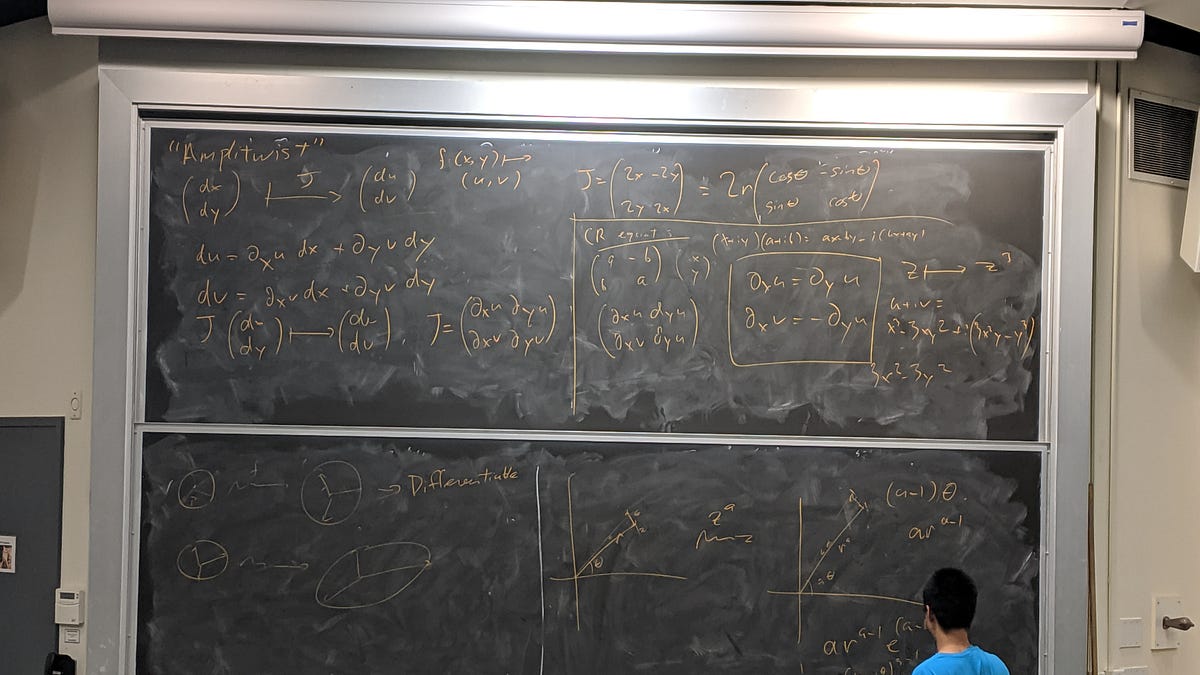 "Amplitwist"
(dx dy) ⟼ (du dv)
J
f: (x, y) ↦
(u, v)
du = ∂xu dx + ∂yv dy
dv = ∂xv dx + ∂yv dy
J (du dy) ⟼ (du dv). J = (∂xu ∂yu ∂xv ∂yv)
J = (2x -2y 2y 2x) = 2r (cosθ -sinθ sinθ cosθ)
CR
(a -b b a) (x y)
(∂xu ∂yu ∂xv ∂yu)
∂xu = ∂yu
∂xv = -∂yu
z ⟼ z³
u+iv =
x³-3xy²+i(3x²y-y³)
3x²-3y²
→ Differentiable
θ
zᵃ
(a-1)θ.
arᵃ⁻¹
arᵃ⁻¹ e